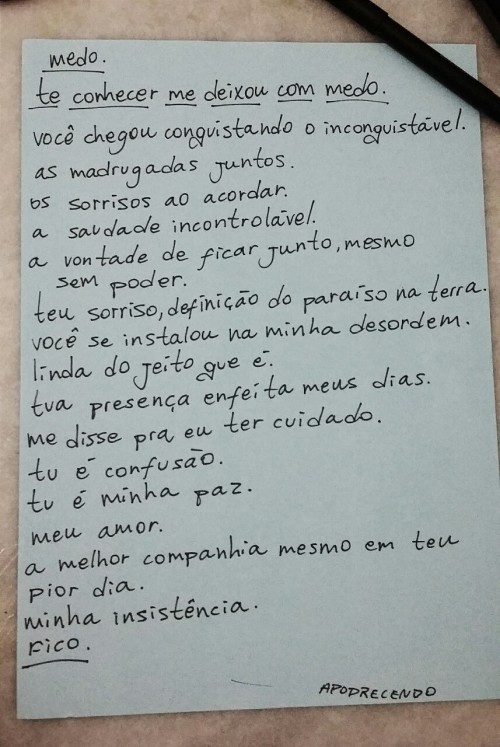 medo.
te conhecer me deixou com medo.
você chegou conquistando o inconquistável.
as madrugadas juntos.
os sorrisos ao acordar.
a saudade incontrolável.
a vontade de ficar junto, mesmo
sem poder.
teu sorriso, definição do paraíso na terra.
você se instalou na minha desordem.
linda do jeito que é.
tua presença enfeita meus dias.
me disse pra eu ter cuidado.
tu é confusão.
tu é minha paz.
meu amor.
a melhor companhia mesmo em teu
pior dia.
minha insistência.
Fico.
APODRECENDO